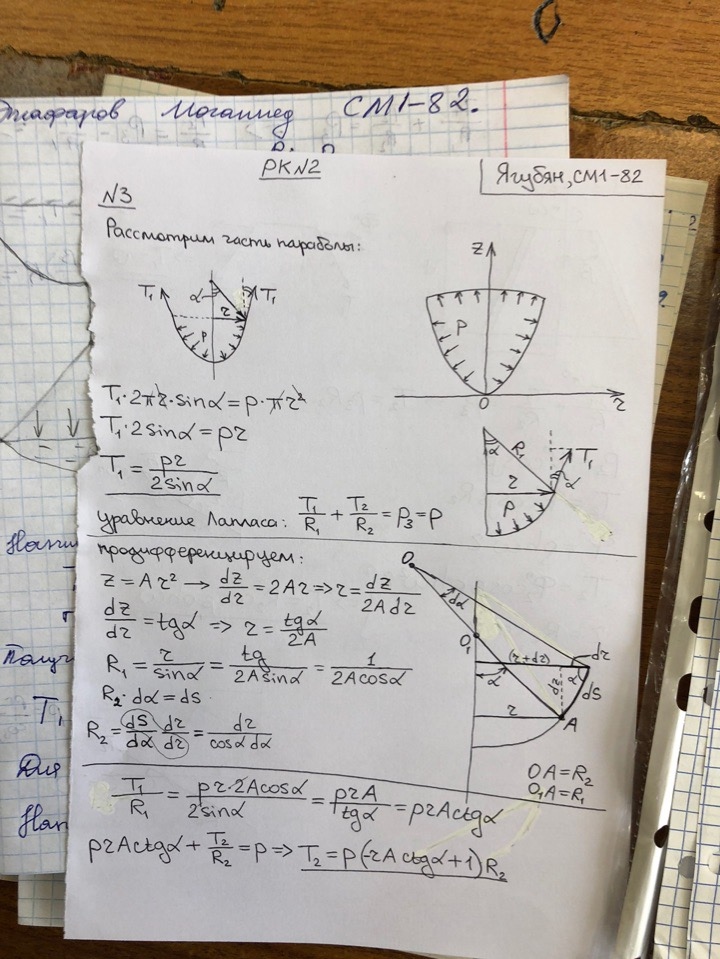 Джафаров Могаммед СМ1-82.
РК №2
Ягубян, СМ1-82
№3
Рассмотрим часть параболы:
T₁ α T₁
r
P
z
P
0 r
T₁·2πr·sinα = p·πr²
T₁·2sinα = pr
T₁ = pr/(2sinα)
α R₁ T₁
r α
P
уравнение Лапласа: T₁/R₁ + T₂/R₂ = P₃ = P
продифференцируем:
z = Ar² → dz/dr = 2Ar ⇒ r = dz/(2Adr)
dz/dr = tgα ⇒ r = tgα/(2A)
R₁ = r/sinα = tg/(2Asinα) = 1/(2Acosα)
R₂·dα = ds
R₂ = dS/dα dr/dr = dr/(cosα dα)
O
dα
O₁ (r+dr) dr
α dz α dS
r A
OA = R₂
O₁A = R₁
T₁/R₁ = pr·2Acosα/(2sinα) = prA/tgα = prActgα
prActgα + T₂/R₂ = p ⇒ T₂ = p(-rActgα+1)R₂
T₁
Для